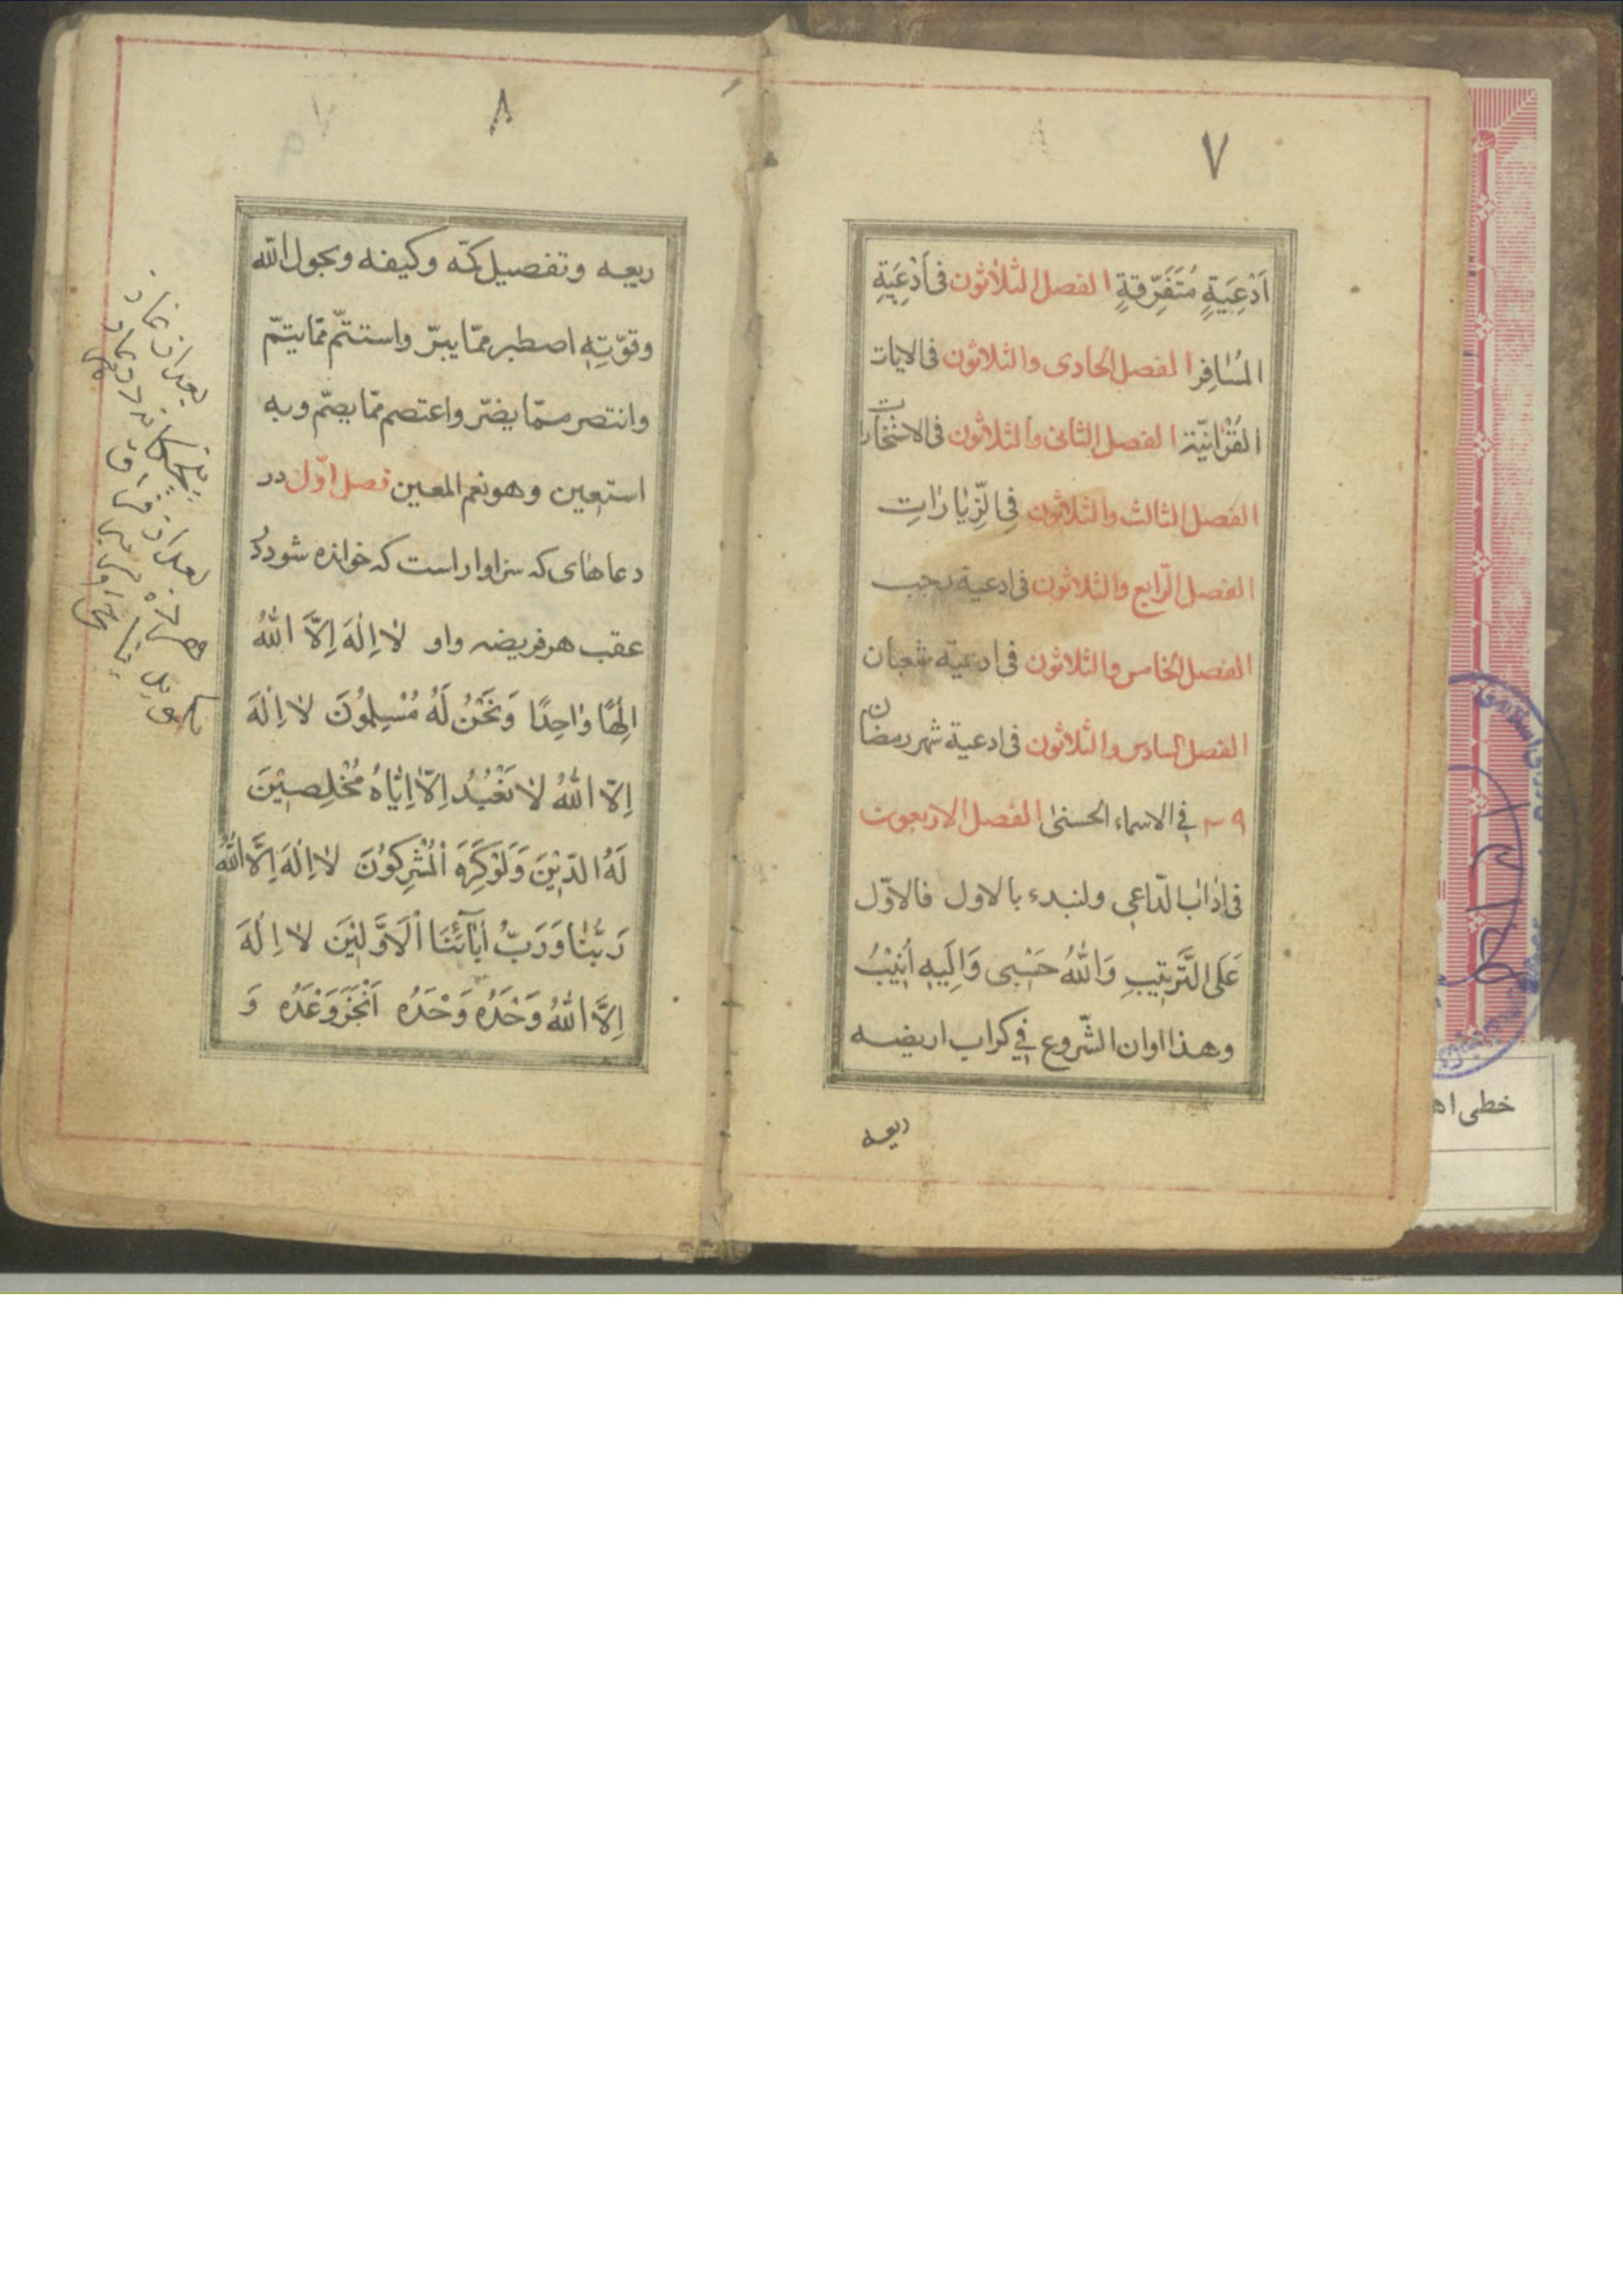 ٧
اَدْعِيَةٍ مُتَفَرِّقةٍ الفصل الثلاثون فى اَدْعِيَةِ
المُسٰافِر الفصل الحادى والثلاثون فى الايات
القُرْانيّة الفصل الثانى والثلاثون فى الاستخارت
الفصل الثالث والثلاثون فِى الزِّيٰارٰاتِ
الفصل الرّابع والثلاثون فى ادعية رجب
الفصل الخامس والثلاثون فى ادعية شعبان
الفصل السادس والثلاثون فى ادعية شهر رمضان
٣٩ فى الاسماء الحسنىٰ الفصل الاربعون
فى اداٰب الدّاعى ولنبدء بالاول فالاوّل
عَلَى التَّرتيبِ وَاللّٰهُ حَسْبى وَاِلَيهِ اُنيْبُ
وهذا اوان الشّروع فى
ربعه
٨
ربعه وتفصيل وكيفه وبحول اللّه
وقوّتِهِ اصطبر ممّا يبرّ واستتمّ ممّا يتمّ
وانتصر ممّا يضرّ واعتصم ممّا يصّم وبه
استعين وهو نعم المعين فصل اوّل در
دعاهاى كه سزاوار است كه خوانده شود در
عقب هر فريضه واو لاٰ اِلٰهَ اِلاَّ اللّٰهُ
اِلٰهًا وٰاحِدًا وَنَحْنُ لَهُ مُسْلِمُونَ لاٰ اِلٰهَ
اِلاّ اللّٰهُ لاٰ نَعْبُدُ اِلاّٰ اِيّٰاهُ مُخْلِصيْنَ
لَهُ الدّيْنَ وَلَوْكَرِهَ الْمُشْرِكُوْنَ لاٰ اِلٰهَ اِلاَّ اللّٰهُ
رَبُّنٰا وَرَبُّ اٰبٰآئِنَا اْلاَوَّليْنَ لاٰ اِلٰهَ
اِلاَّ اللّٰهُ وَحْدَهُ وَحْدَهُ اَنْجَزَ وَعْدَهُ وَ
خطى اه